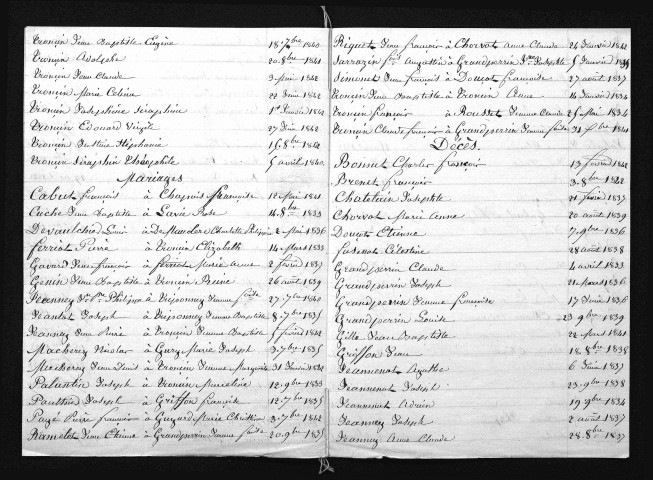 Tronçin Jean Baptiste Eugène 18 7bre 1840
Tronçin Adolphe 20 8bre 1841
Tronçin Jean Claude 3 Mai 1842
Tronçin Marie Celina 22 Juin 1842
Tronçin Joséphine Séraphine 1er Janvier 1841
Tronçin Edouard Virgile 27 Juin 1842
Tronçin Justine Stéphanie 15 8bre 1842
Tronçin Séraphin Théophile 5 avril 1840
Mariages
Cabut françois à Chapuis françoise 12 Mai 1841
Cuche Jean Baptiste à Lavie Rose 14 8bre 1833
Devaulchier Louis à De Mendre Charlotte Philippine 2 Mai 1836
Ferriot Pierre à Tronçin Elizabeth 14 Mars 1833
Gavard Jean françois à ferriot Marie Anne 2 février 1837
Genin Jean Baptiste à Tronçin Reine 26 août 1839
Jeanney Philippe à Trésonney Jeanne 27 7bre 1840
Jeantot Joseph à Trésonney Jeanne Baptiste 8 7bre 1835
Jeanney Jean Pierre à Tronçin Jeanne Baptiste février 1842
Macherey Nicolas à Gury Marie Joseph 3 7bre 1835
Macherey Jean Louis à Tronçin Jeanne Marguerite 31 Janvier
Palantin Joseph à Tronçin Marceline 12 9bre 1833
Pauthier Joseph à Griffon françoise 12 7bre 1835
Payé Pierre françois à Guyard Marie Christine 3 7bre 1842
Ramelet Jean Etienne à Grandperrin Jeanne 20 9bre 1837
Riguet Jean françois à Chorvot Anne Claude 24 Janvier 1842
Sarrazin Augustin à Grandperrin Josephte Janvier
Simonet Jean françois à Douçot françoise 27 août 1837
Tronçin Jean Baptiste à Tronçin Anne 14 Janvier 1834
Tronçin françois à Rousset Jeanne Claude 25 Mai 1834
Tronçin Claude françois à Grandperrin Jeanne 31 1841
Décès.
Bonnet Charles françois 13 février 1842
Brenet françois 3 8bre 1842
Chatelain Josephte 21 février 1835
Chorvot Marie Anne 20 août 1839
Douçot Etienne 7 9bre 1836
Célestine 28 août 1838
Grandperrin Claude 4 avril 1833
Grandperrin Joseph 21 Mars 1836
Grandperrin Jeanne françoise 17 Juin 1836
Grandperrin Louise 23 9bre 1839
Gille Jean Baptiste 22 Mars 1841
Griffon Jean 18 8bre 1838
Jeannenot Agathe 6 Juin 1837
Jeannenot Joseph 23 9bre 1838
Jeannenot Adrien 19 9bre 1834
Jeanney Joseph 2 août 1837
Jeanney Anne Claude 28 8bre 1837